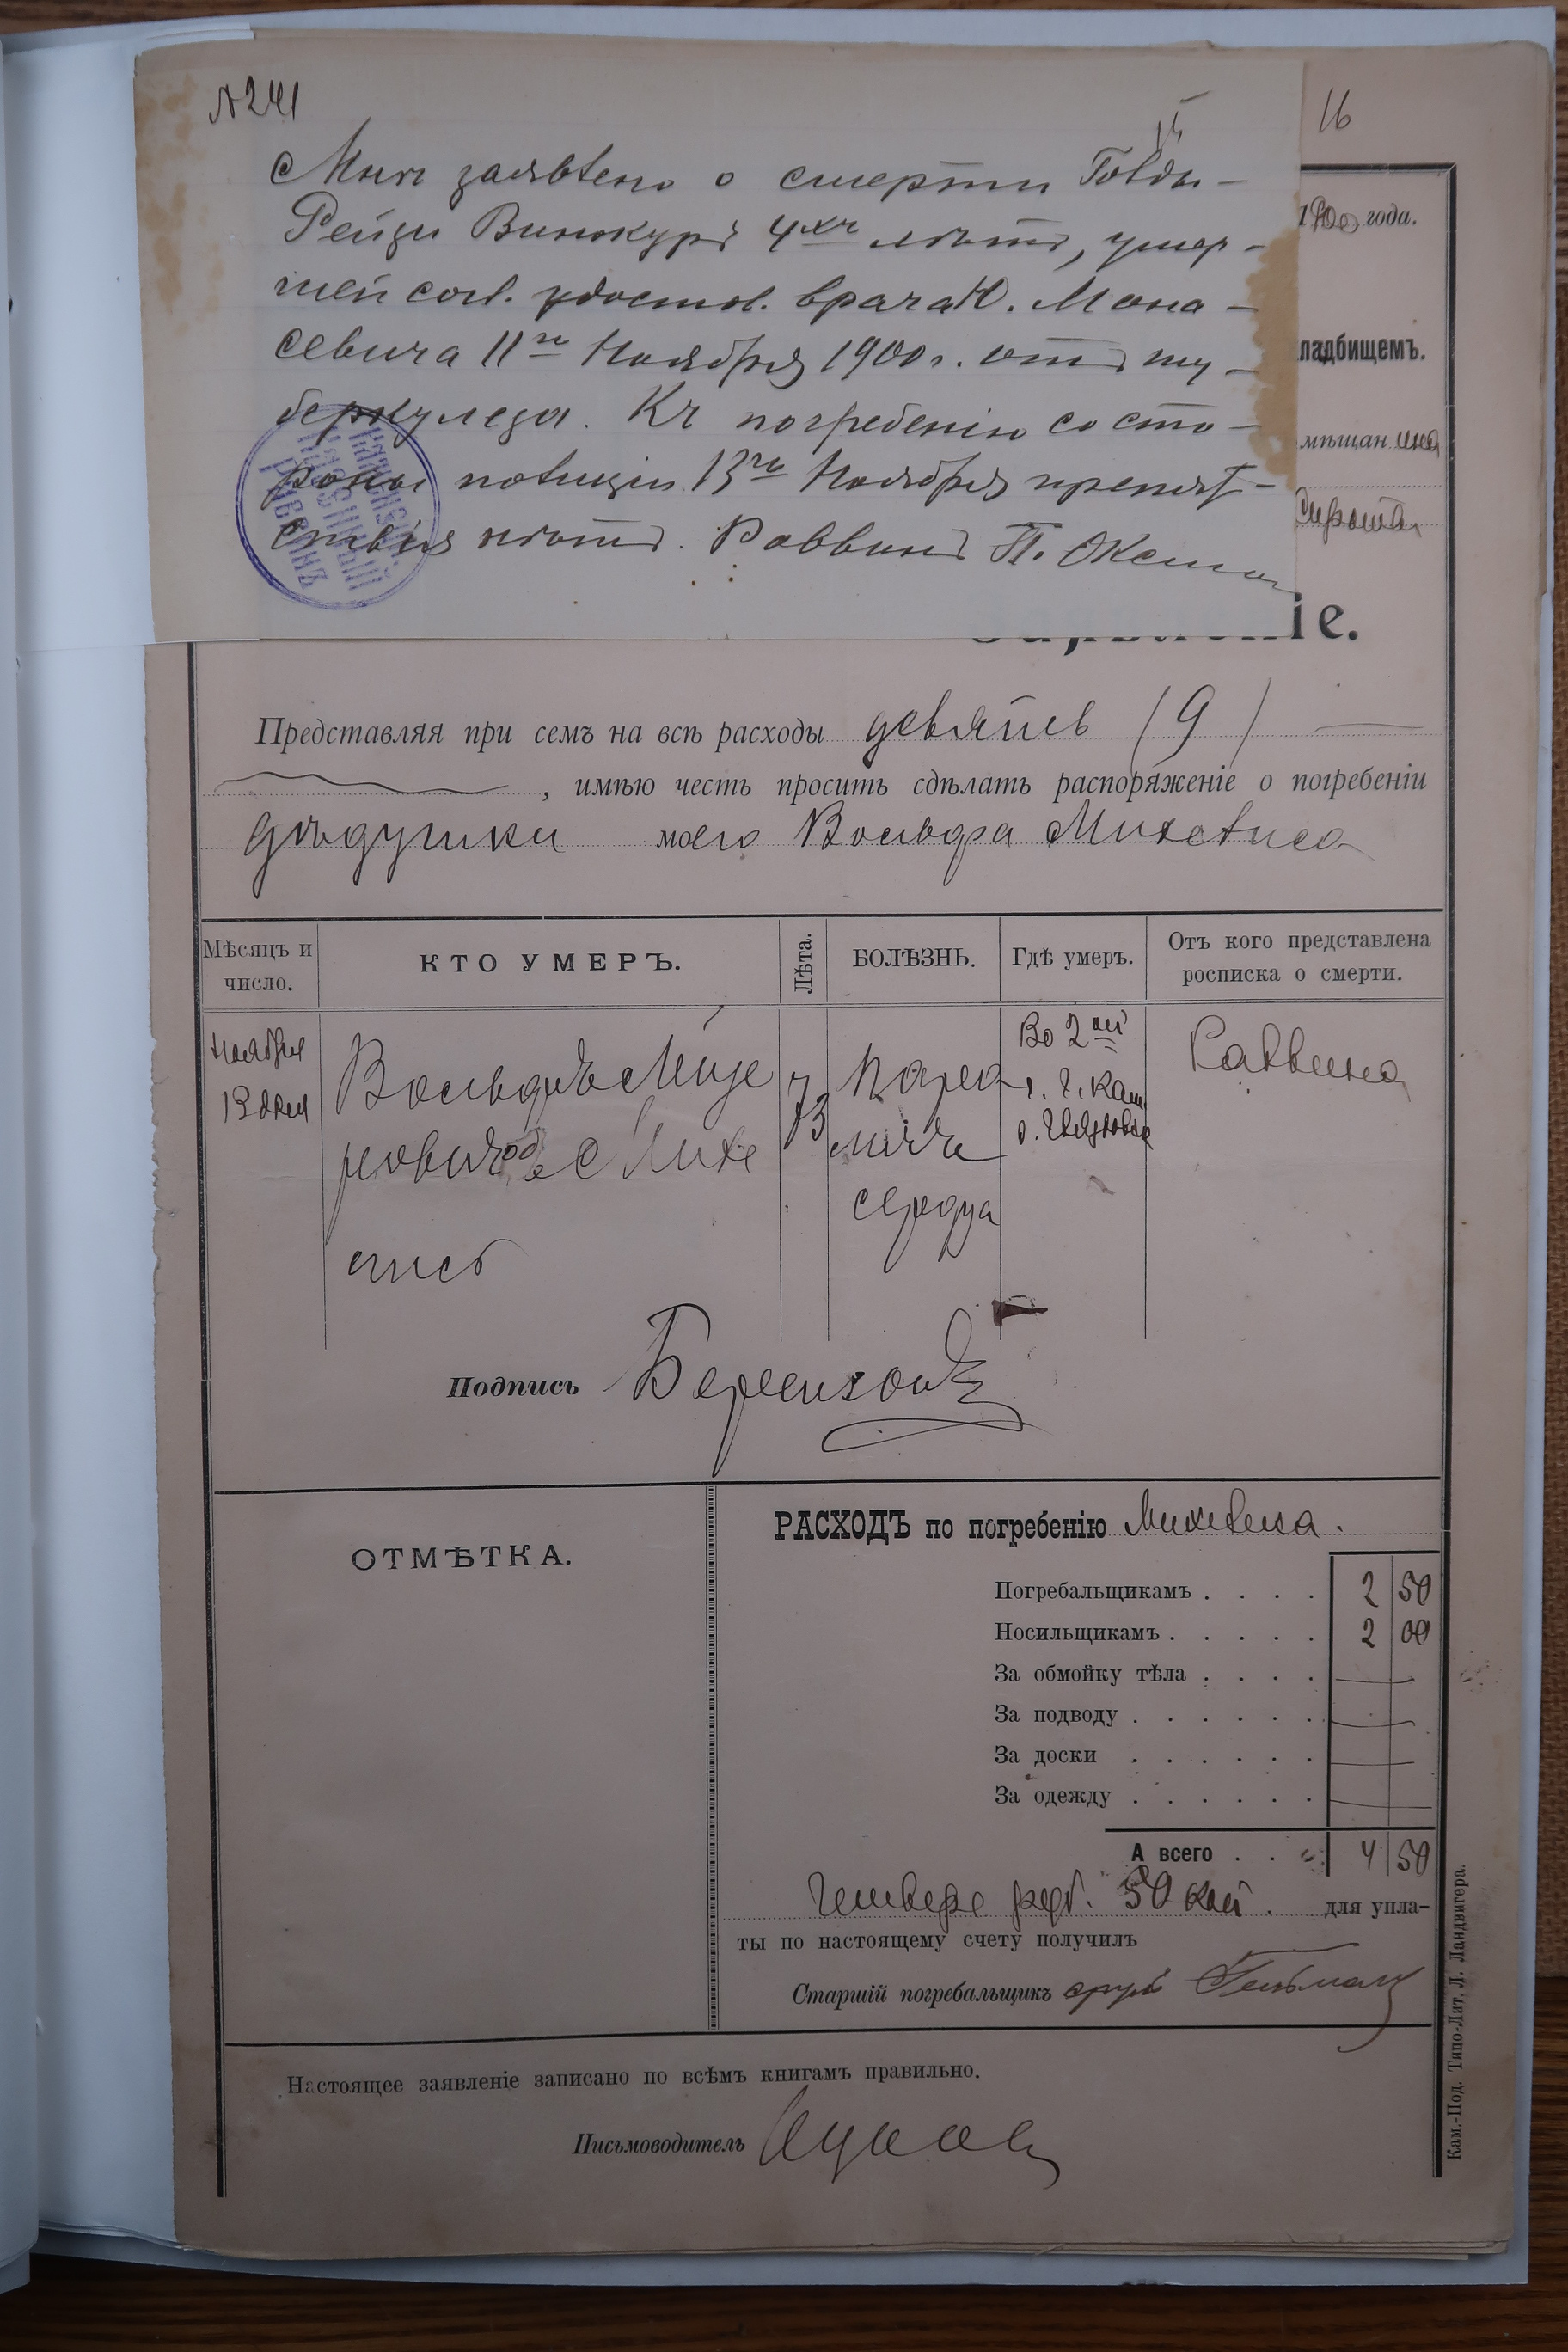 № 241
16
Мнѣ заявлено о смерти Голды-
Рейзи Винокуръ 4хъ лѣтъ, умер-
шей согл. удостов. врача Ю. Мона-
севича 11го Ноября 1900 г. отъ ту-
беркулеза. Къ погребенію со сто-
роны полиціи 13го Ноября препят-
ствія нѣтъ. Раввинъ П.
КАЗЕННЫЙ
РАВВИНЪ
1900 года.
ладбищемъ.
мѣщан ина
іе.
Представляя при семъ на всѣ расходы девять (9)
, имѣю честь просить сдѣлать распоряженіе о погребеніи
дѣдушки моего Вольфа Михелиса
Мѣсяцъ и число.
КТО УМЕРЪ.
Лѣта.
БОЛѢЗНЬ.
Гдѣ умеръ.
Отъ кого представлена росписка о смерти.
Ноября
13 дня
Вольфъ Мие
ровичъ Михе
лисъ
73
Пара
личъ
сердца
Во 2ой
Раввина
Подпись
РАСХОДЪ по погребенію Михелиса.
ОТМѢТКА.
Погребальщикамъ . . . . 2 50
Носильщикамъ . . . . . 2 00
За обмойку тѣла . . . . —
За подводу . . . . . . —
За доски . . . . . . —
За одежду . . . . . . —
А всего . . . 4 50
Четыре руб. 50 коп. для упла-
ты по настоящему счету получилъ
Старшій погребальщикъ
Настоящее заявленіе записано по всѣмъ книгамъ правильно.
Письмоводитель
Кам.-Под. Типо-Лит. Л. Ландвигера.